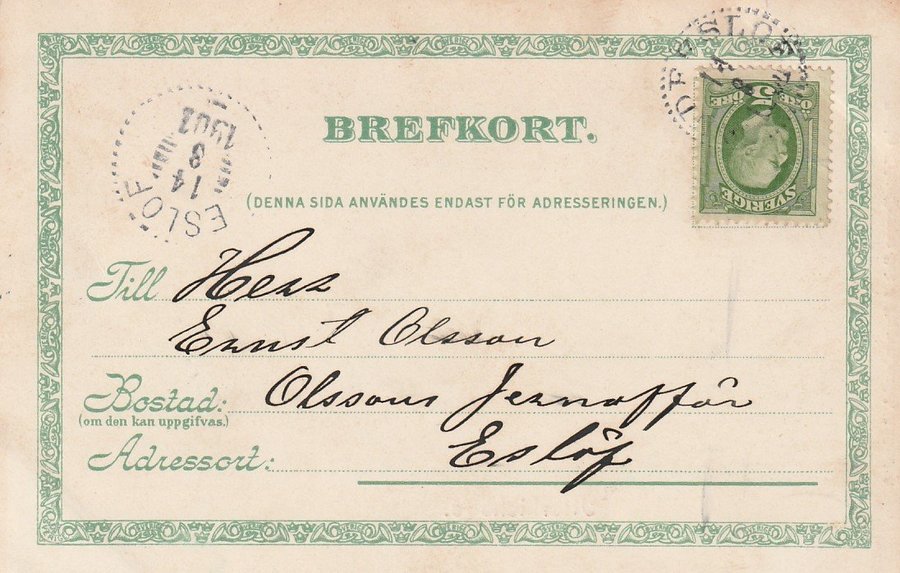 BREFKORT.
(DENNA SIDA ANVÄNDES ENDAST FÖR ADRESSERINGEN.)
5
ÖRE ÖRE
SVERIGE
ESLÖF
14
8
1902
Till Herr
Ernst Olsson
Bostad: Olssons Jernaffär
(om den kan uppgifvas.)
Adressort: Eslöf